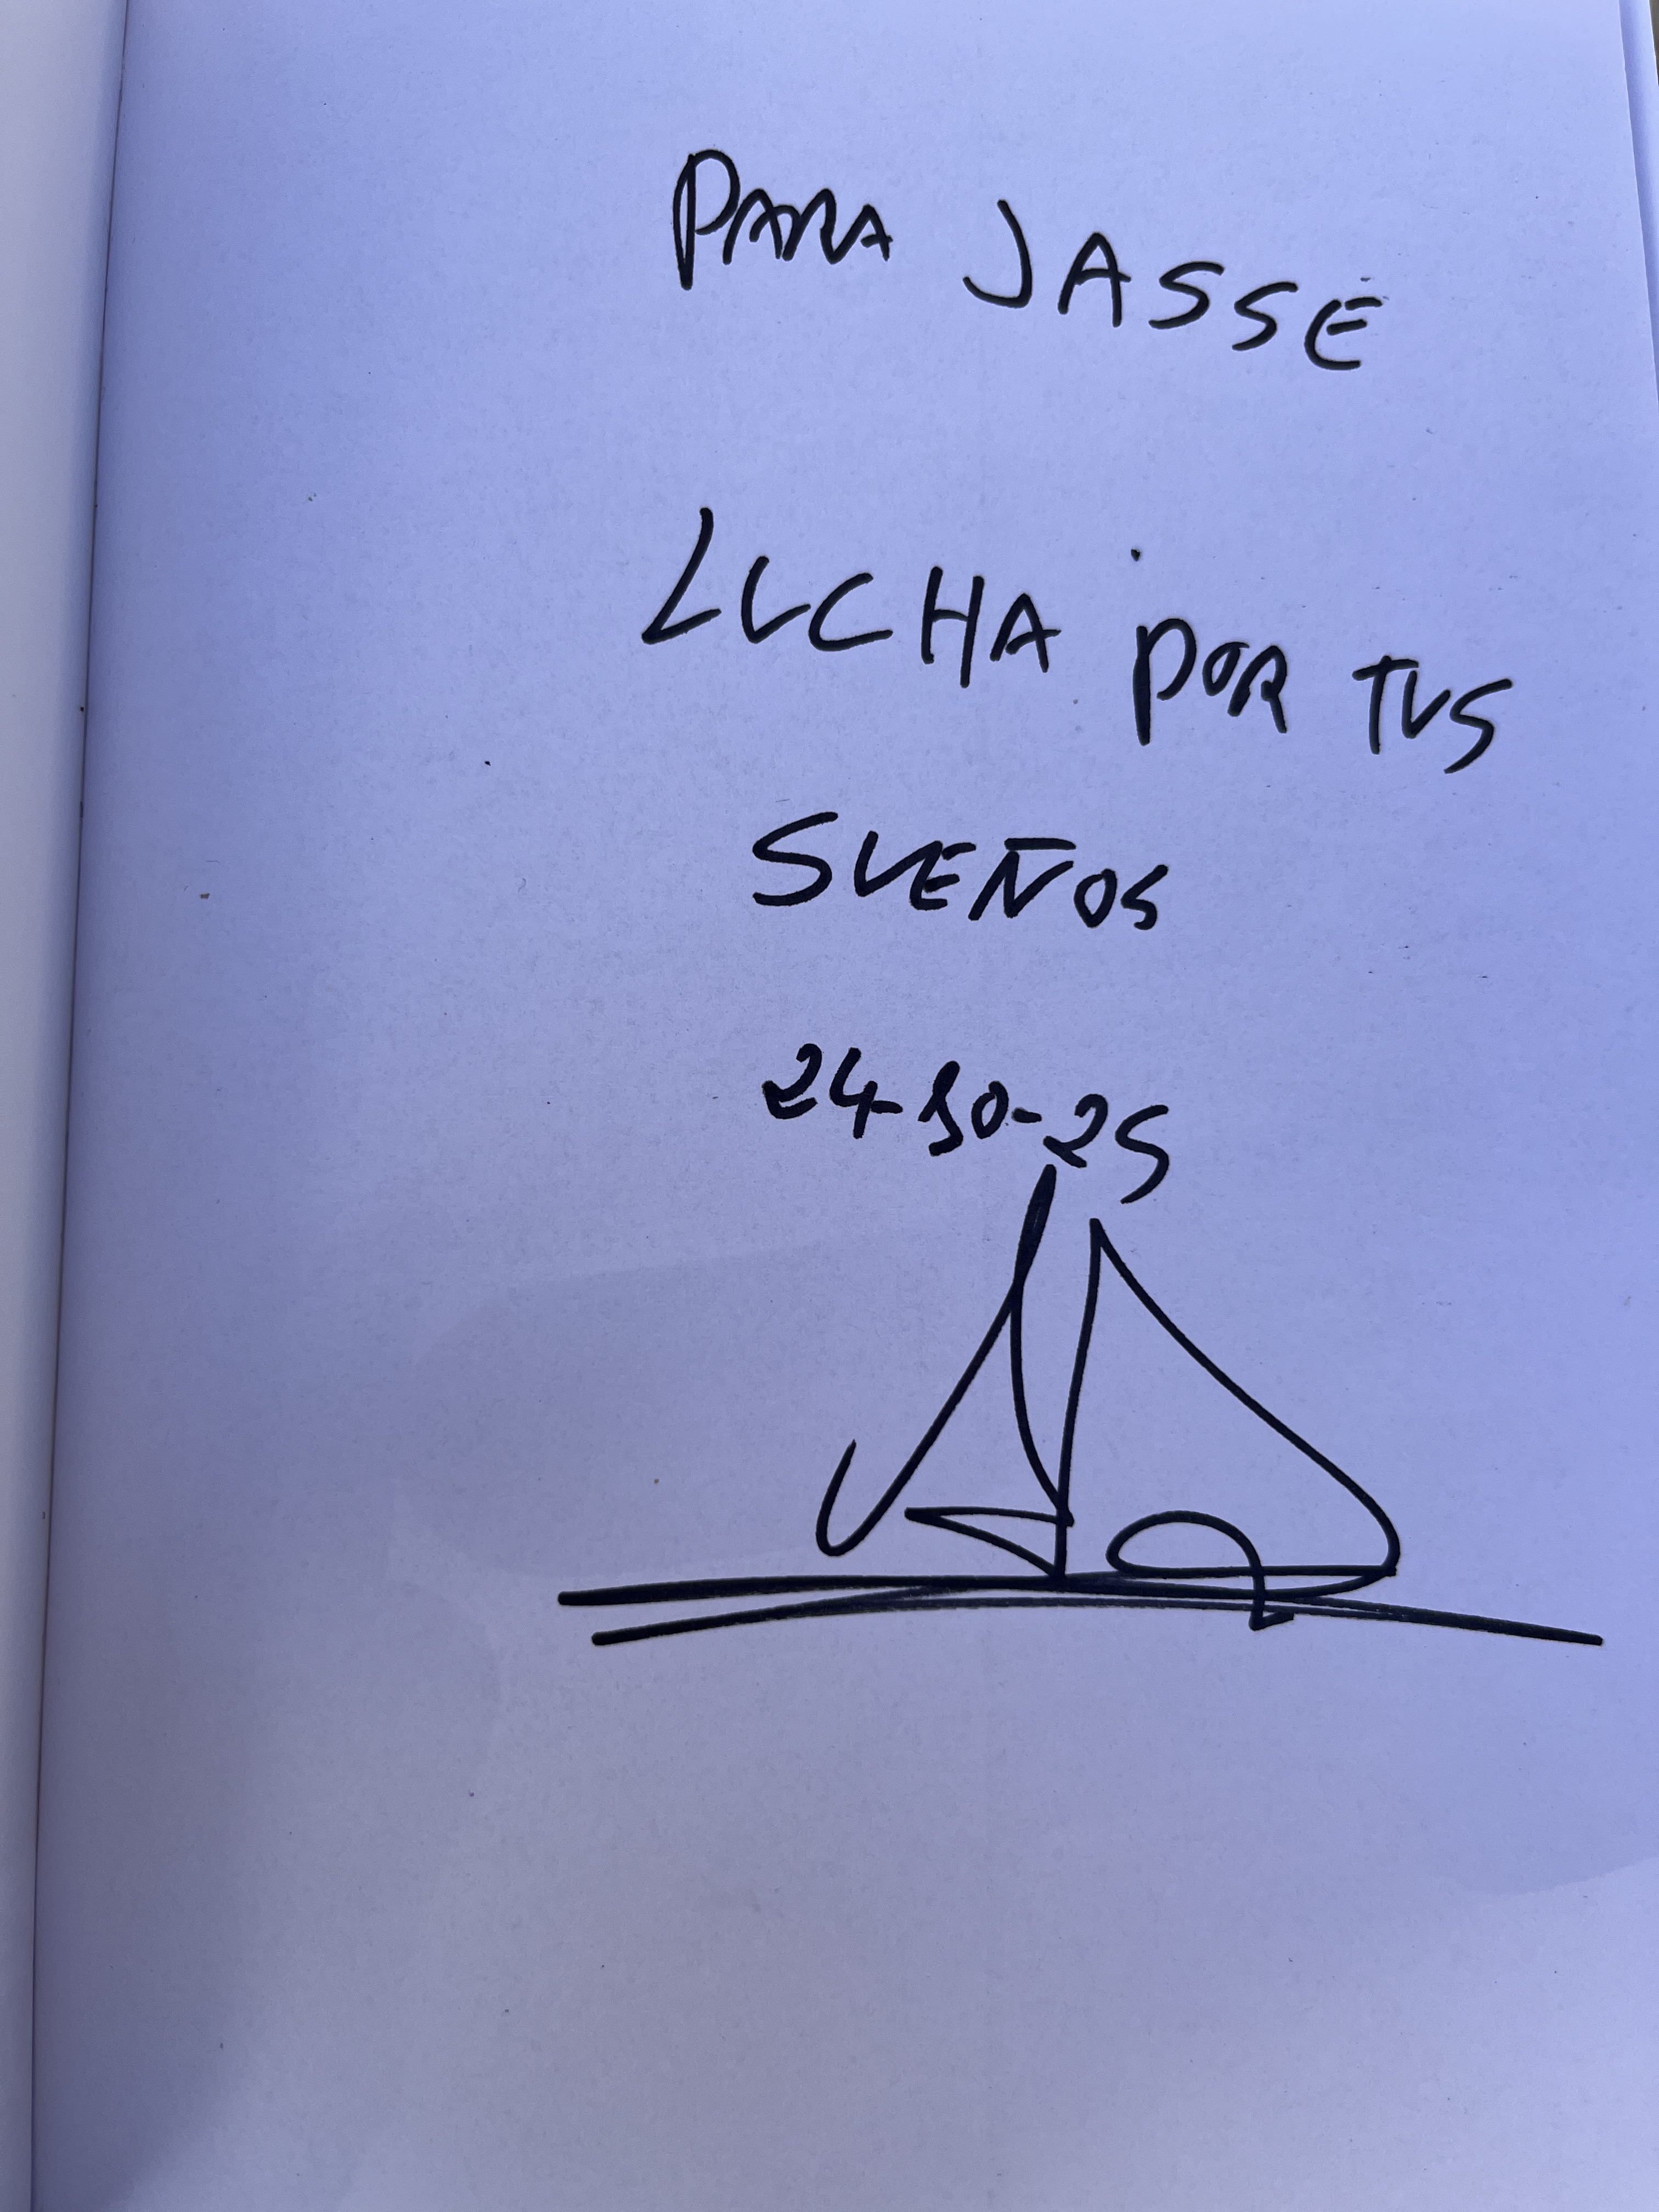 PARA JASSE
LUCHA POR TUS
SUEÑOS
24-10-25